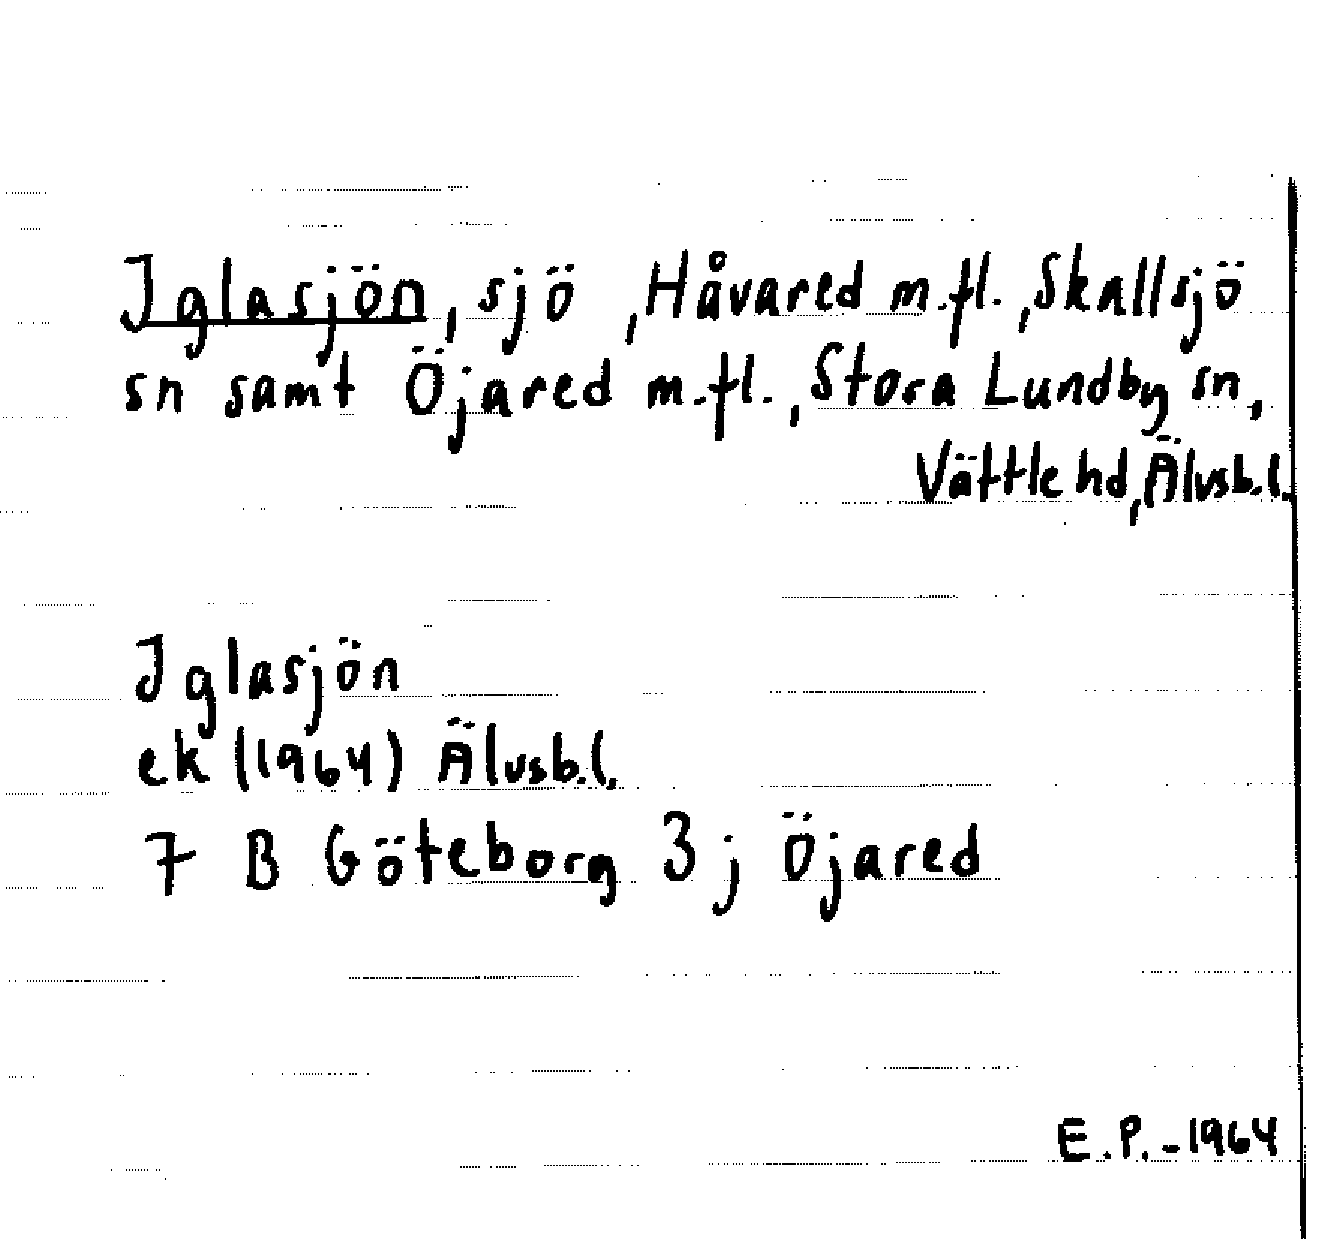 Iglasjön, sjö, Håvared m.fl., Skallsjö
sn samt Öjared m.fl., Stora Lundby sn,
Vättle hd, Älvsb.l.
Iglasjön
ek (1964) Älvsb.l.
7 B Göteborg 3 j Öjared
E.P.-1964